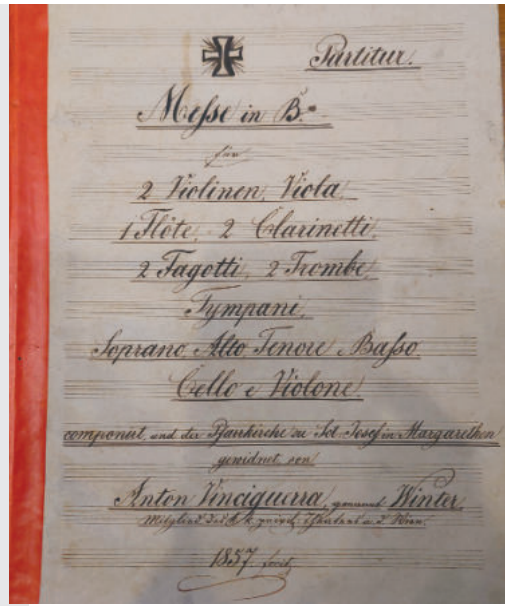 Partitur.
Messe in B.
für
2 Violinen, Viola,
1 Flöte, 2 Clarinetti,
2 Fagotti, 2 Trombe,
Tympani,
Soprano Alto Tenore e Basso
Cello e Violone.
componirt, und der Pfarrkirche zu Sct. Josef in Margarethen
gewidmet von
Anton Vinciguerra, genannt Winter,
Mitglied des k. k. Theaters a. d. Wien.
1857